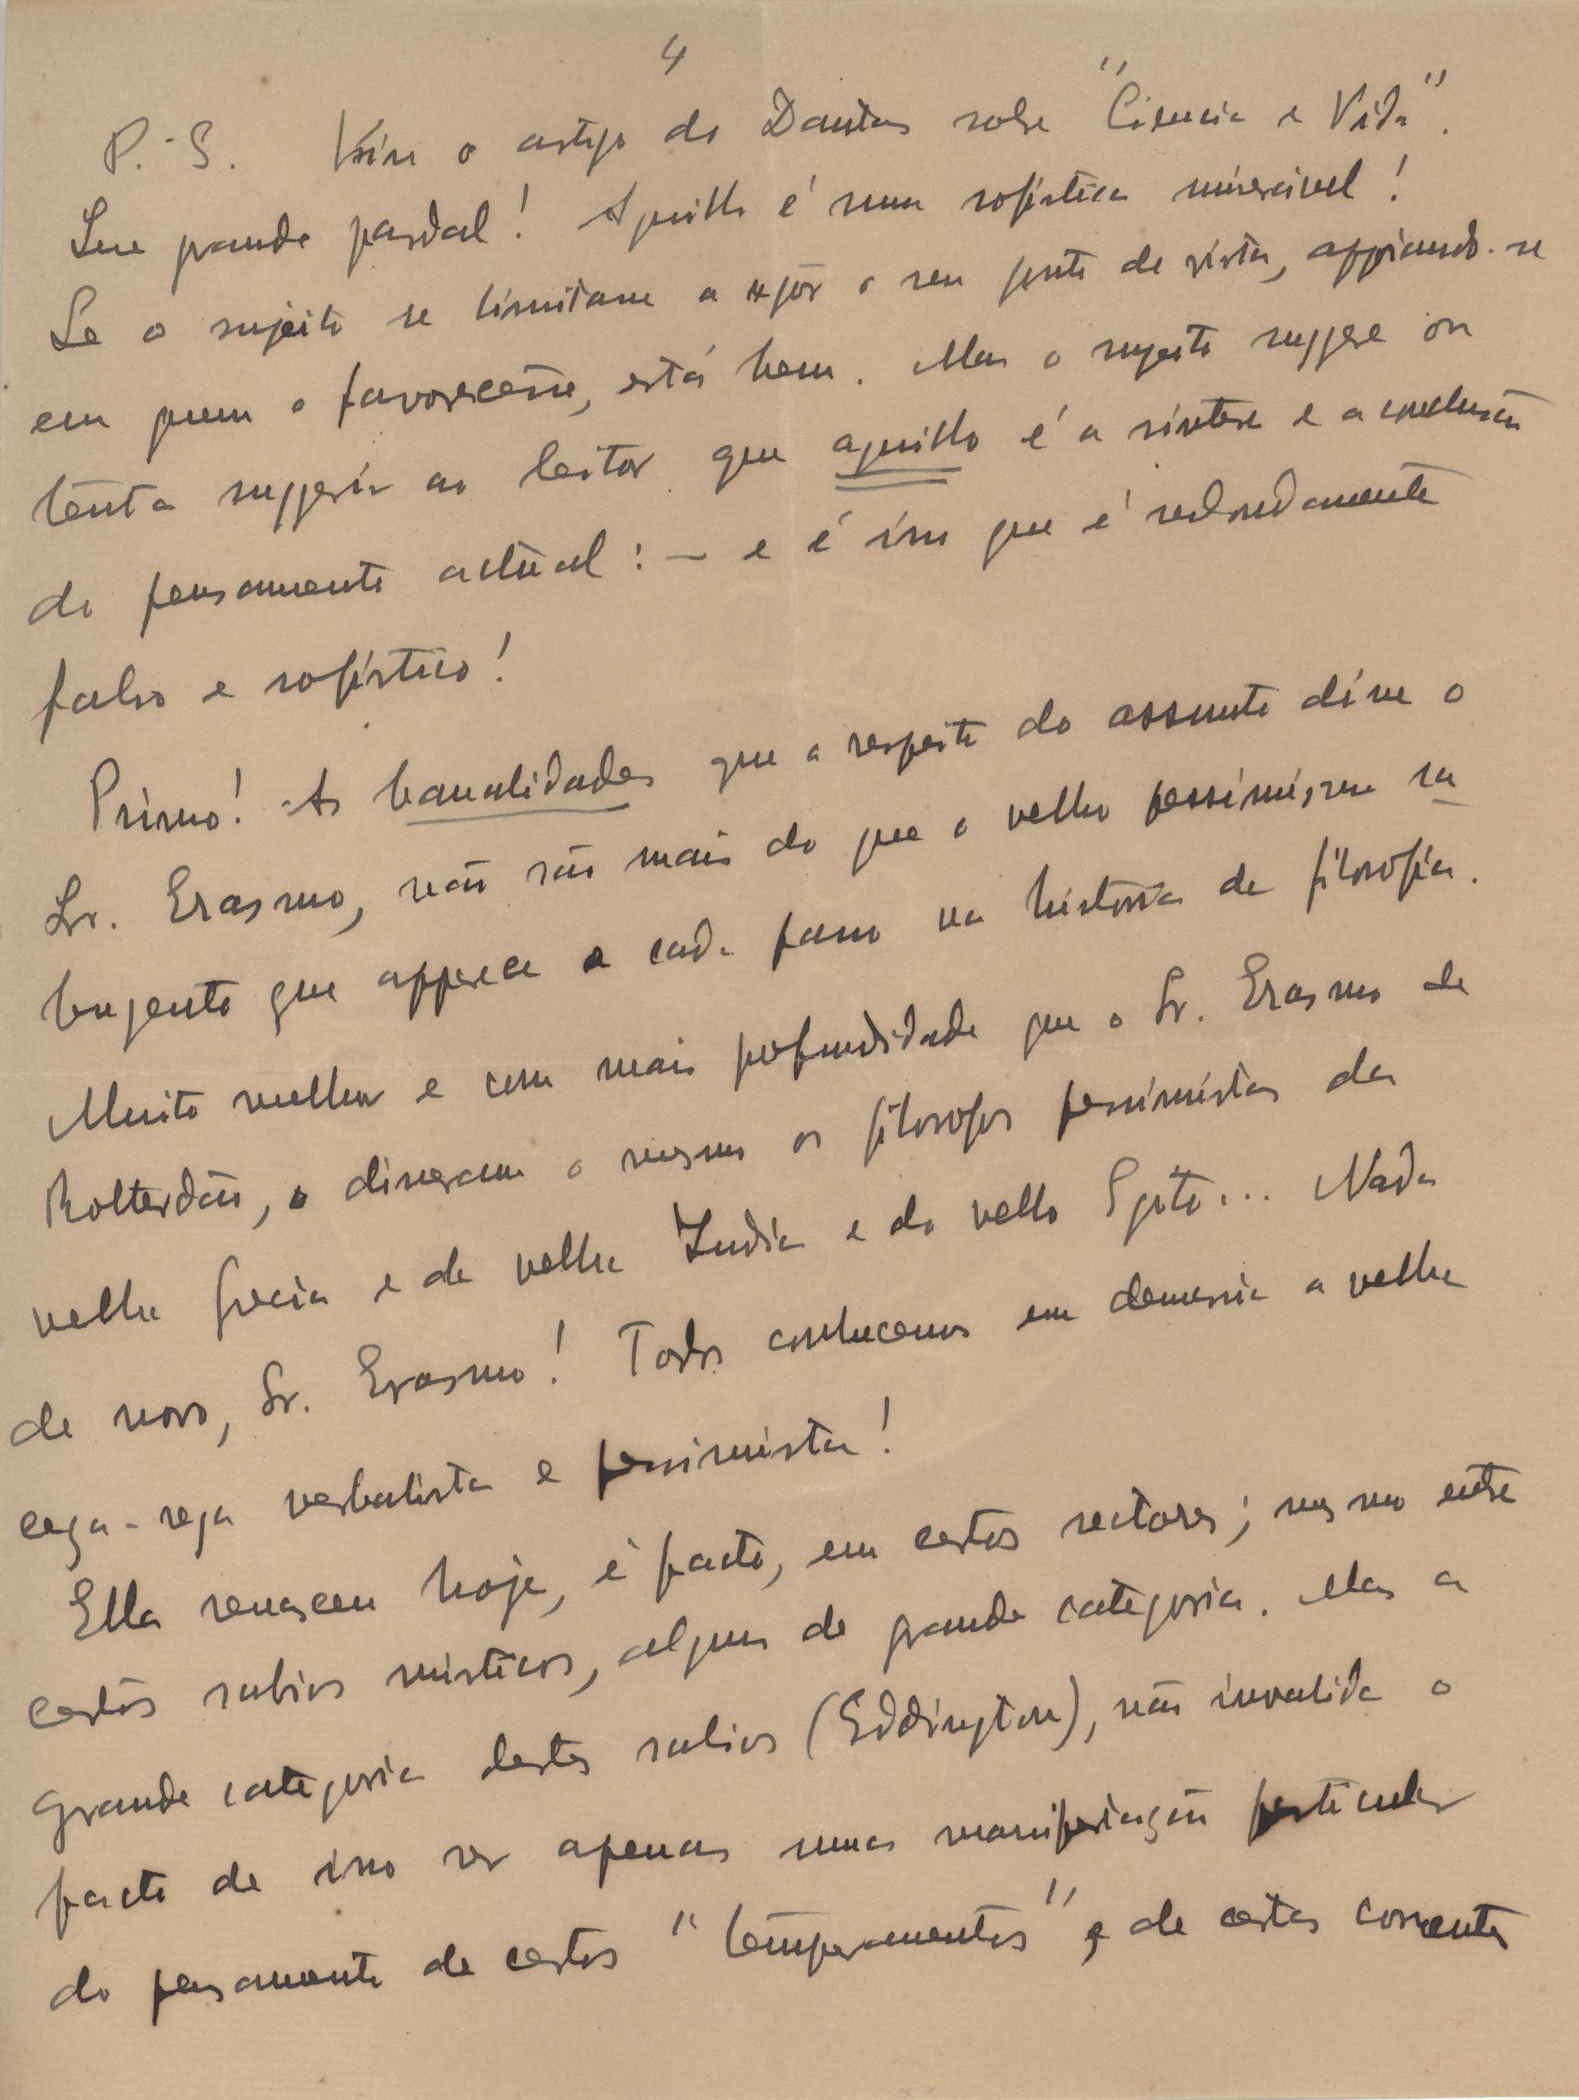 4
P.-S. Viu o artigo do Dantas sobre "Ciencia e Vida".
Seu grande pardal! Aquillo é uma sofistica miseravel!
Se o sujeito se limitasse a expôr o seu ponto de vista, appoiando-se
em quem o favorecesse, está bem. Mas o sugeito suggere ou
tenta suggerir ao leitor que aquillo é a sintese e a conclusão
do pensamento actual: — e é isso que é redondamente
falso e sofistico!
Primo! As banalidades que a respeito do assunto disse o
Sr. Erasmo, não são mais do que o velho pessimismo ra
bujento que apparece a cada passo na historia da filosofia.
Muito melhor e com mais profundidade que o Sr. Erasmo de
Rotterdão, o disseram o mesmo os filosofos pessimistas da
velha Grecia e da velha India e do velho Egito... Nada
de novo, Sr. Erasmo! Todos conhecemos em demasia a velha
cega-rega verbalista e pessimista!
Ella renasceu hoje, é facto, em certos sectores; mesmo entre
certos sabios misticos, alguns de grande categoria. Mas a
grande categoria destes sabios (Eddington), não invalida o
facto de isso ser apenas uma manifestação particular
do pensamento de certos "temperamentos" e de certas correntes